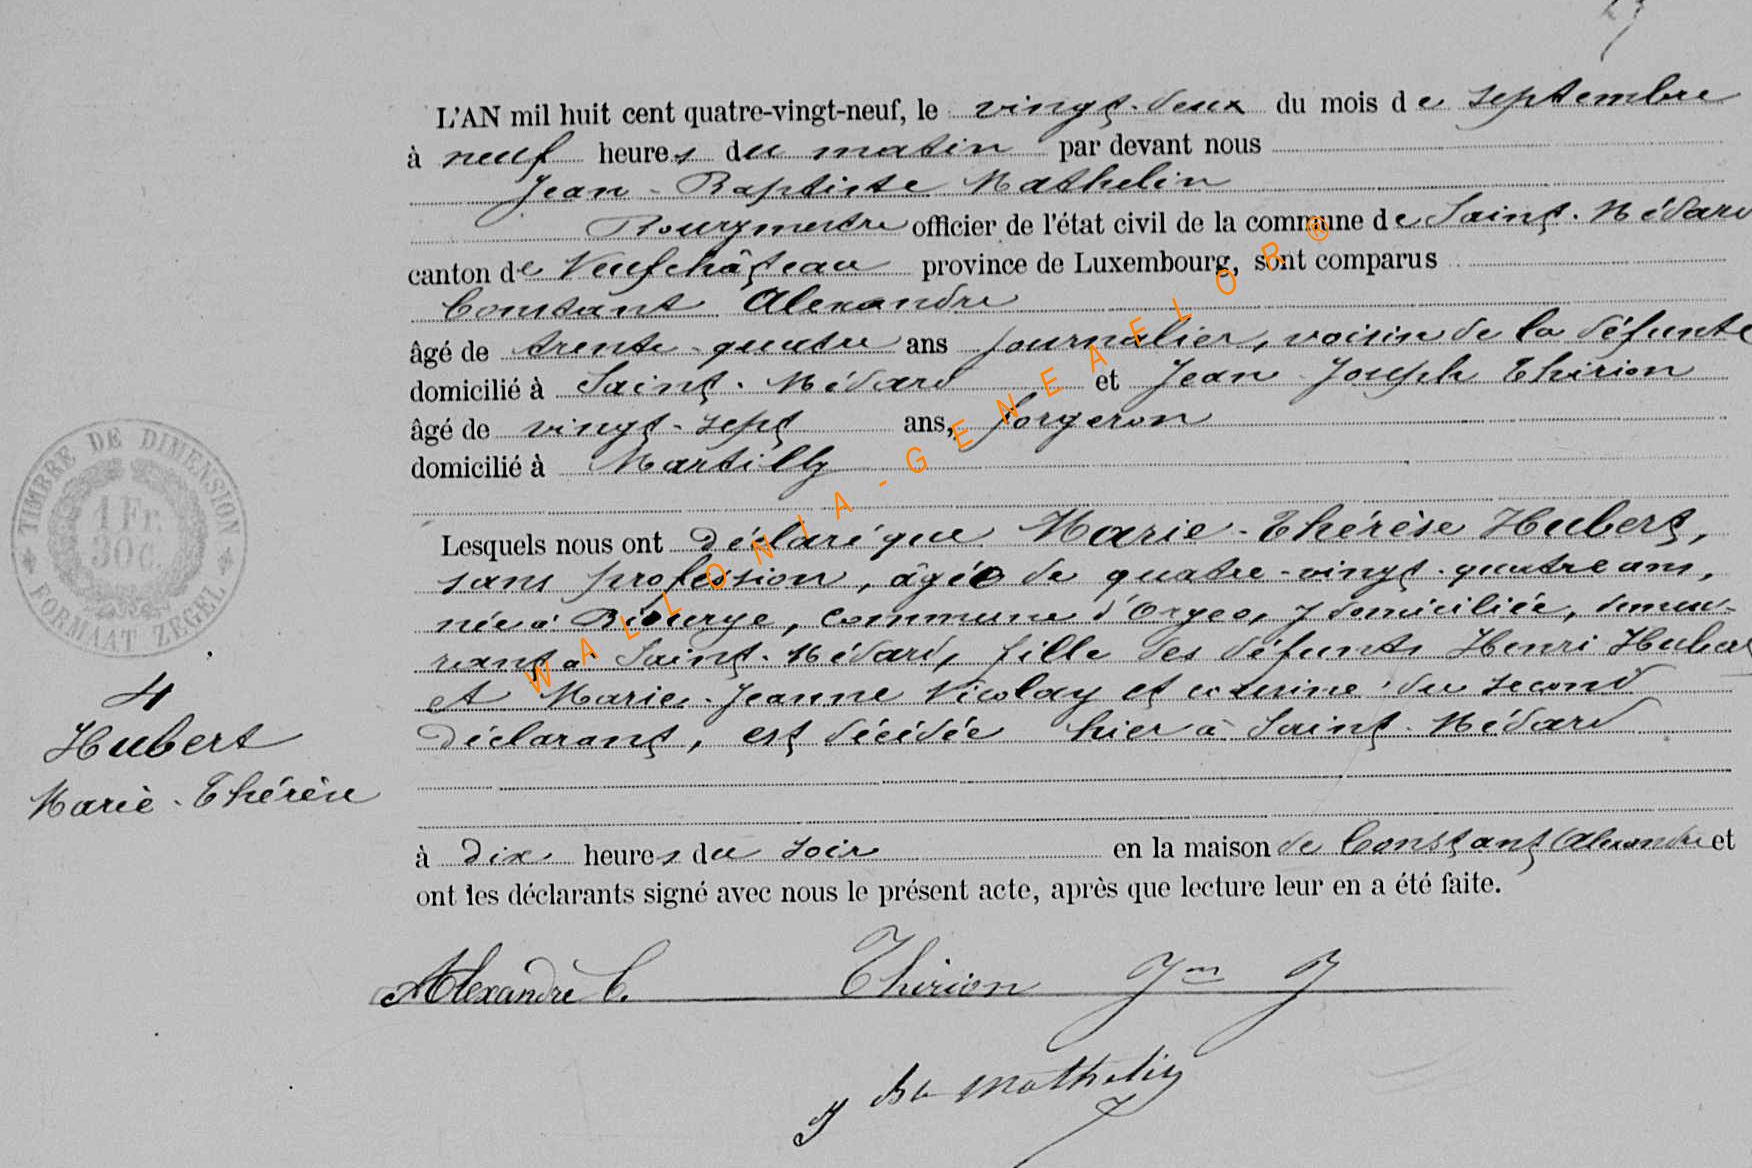 L'AN mil huit cent quatre-vingt-neuf, le vingt-deux du mois de septembre
à neuf heures du matin par devant nous
Jean-Baptiste Mathelin
Bourgmestre officier de l'état civil de la commune de Saint-Médard
canton de Neufchâteau province de Luxembourg, sont comparus
Constant Alexandre
âgé de trente-quatre ans journalier, voisin de la défunte
domicilié à Saint-Médard et Jean Joseph Thirion
âgé de vingt-sept ans, forgeron
domicilié à Martilly
Lesquels nous ont déclaré que Marie-Thérèse Hubert,
sans profession, âgée de quatre-vingt-quatre ans,
née à Biourge, commune d'Orgeo, y domiciliée, demeu-
rant à Saint-Médard, fille des défunts Henri Hubert
et Marie-Jeanne Nicolay et cousine du second
déclarant, est décédée hier à Saint-Médard
à dix heures du soir en la maison de Constant Alexandre et
ont les déclarants signé avec nous le présent acte, après que lecture leur en a été faite.
Alexandre C. Thirion Jn J
J Bte Mathelin
4
Hubert
Marie-Thérèse
TIMBRE DE DIMENSION
1 Fr.
30 c.
FORMAAT ZEGEL
WALLONIA-GENEALOR®